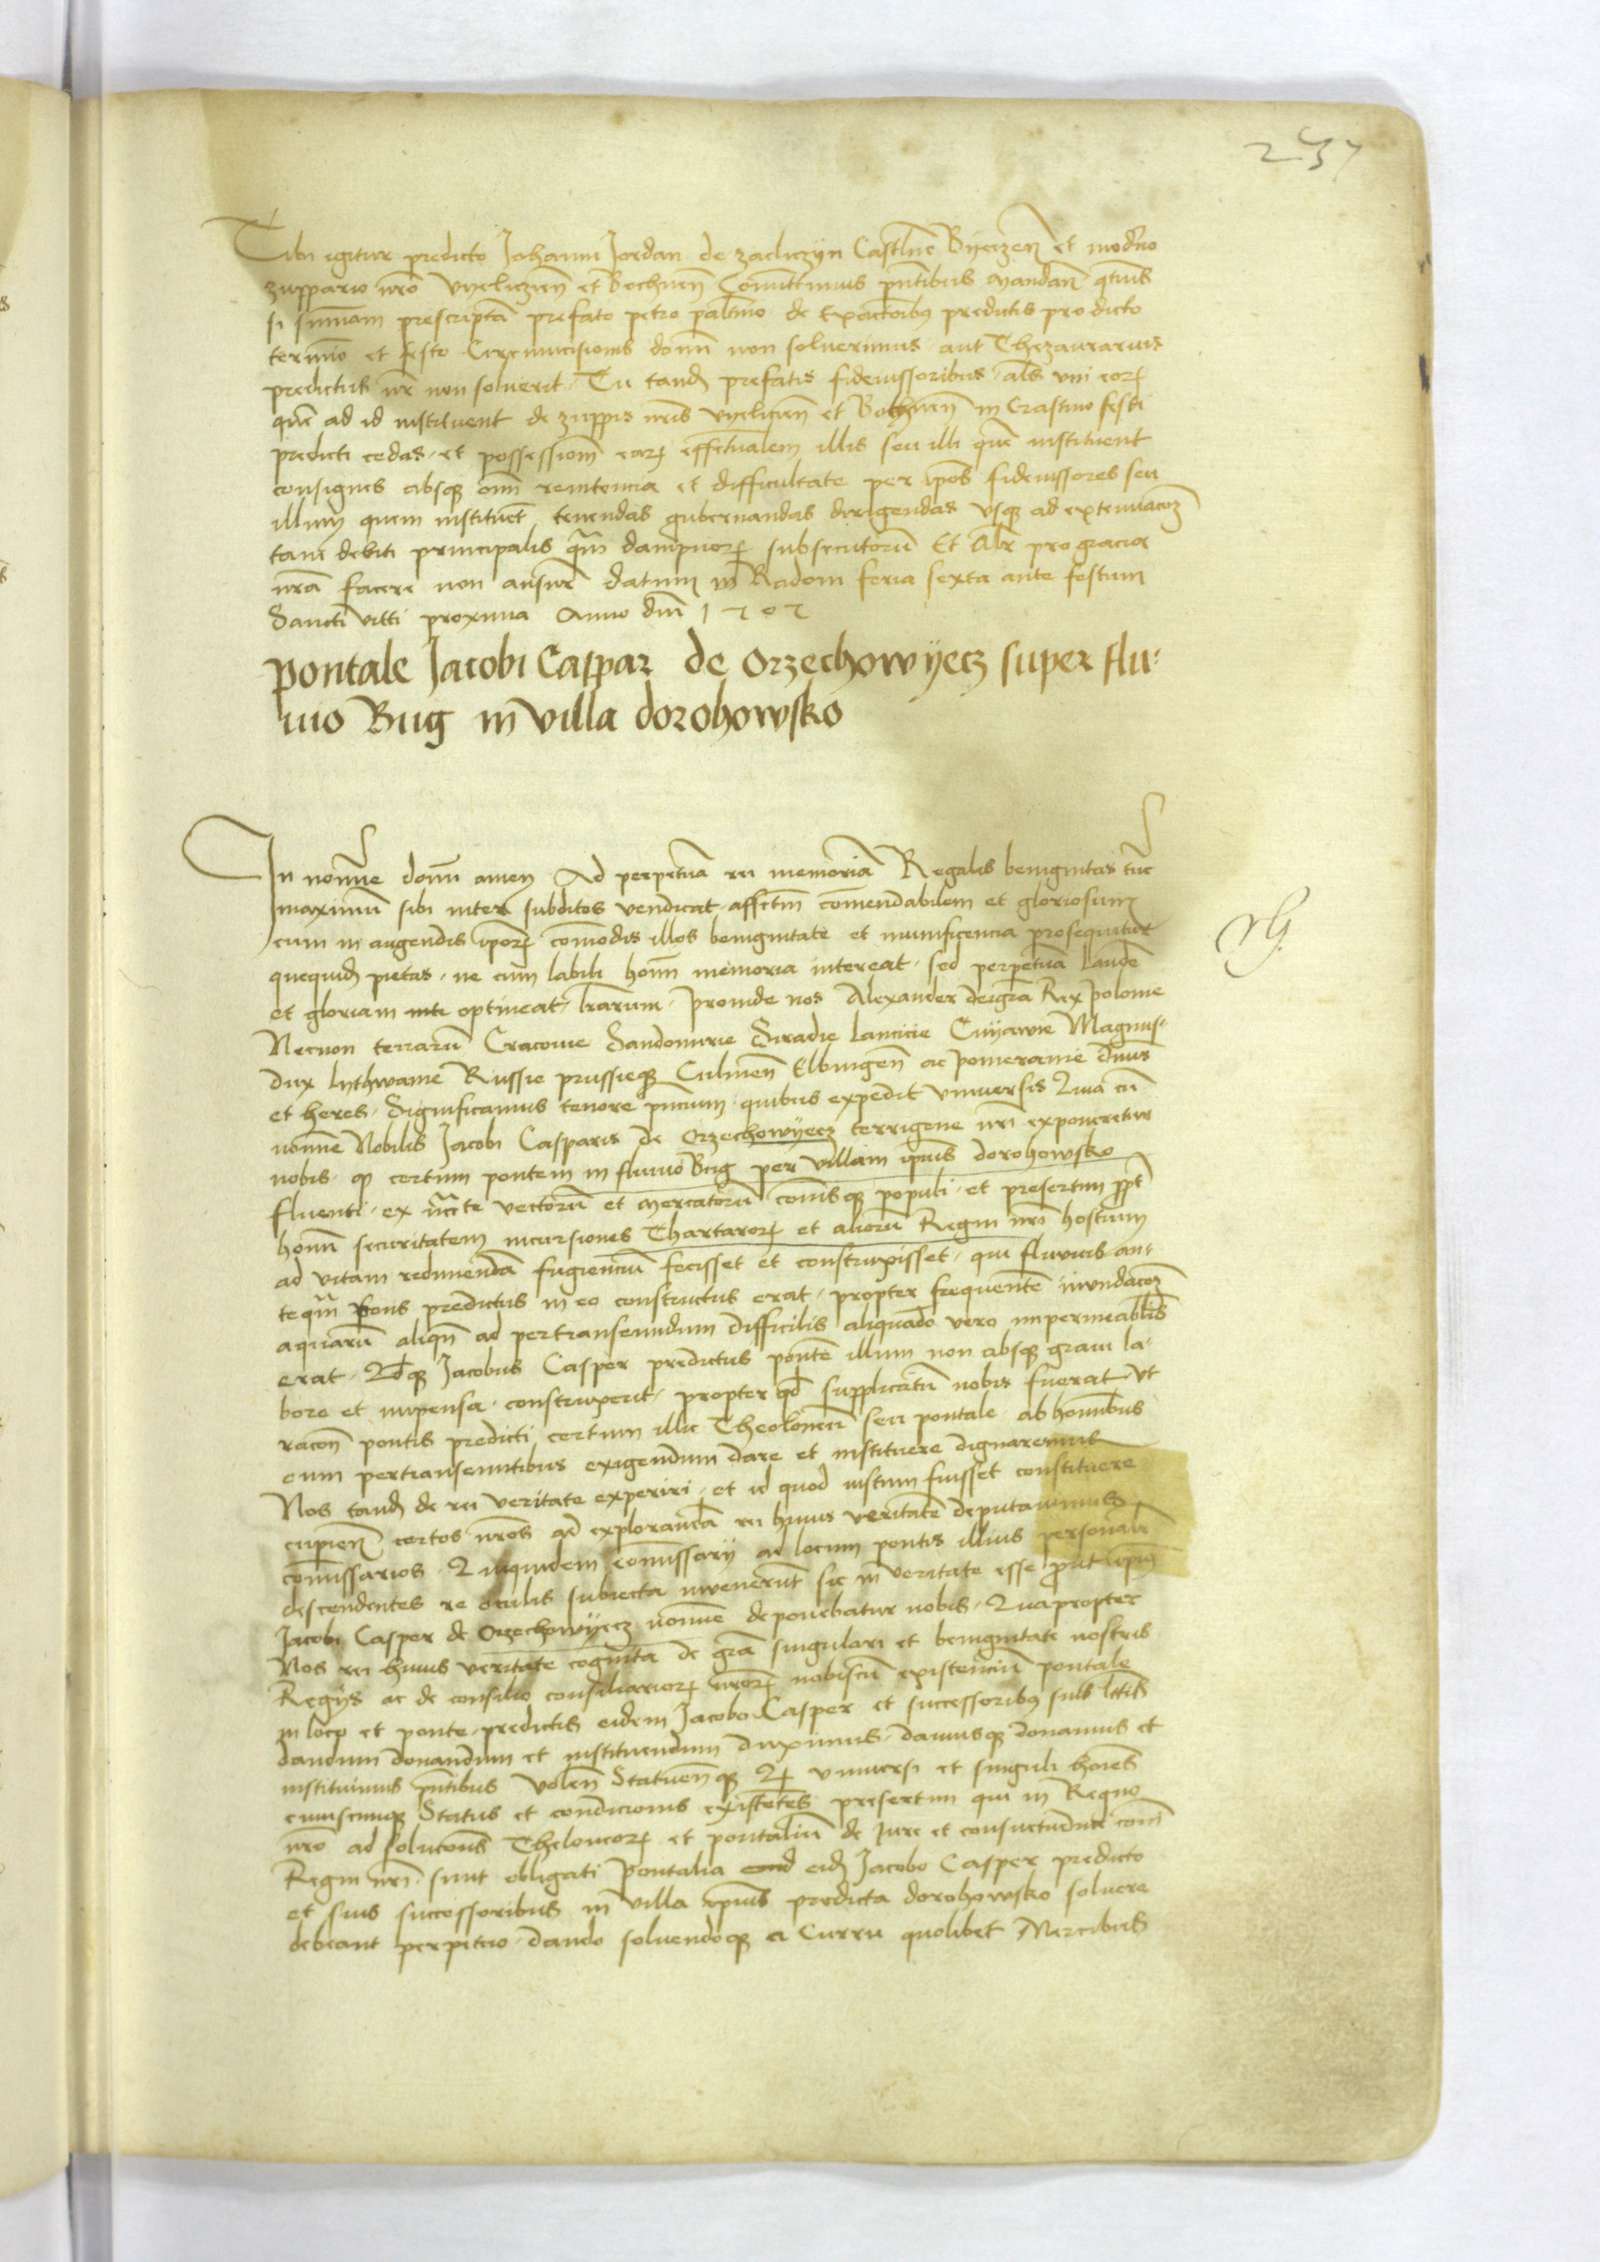 237
Tibi igitur predicto Johanni Jordan de zacliczyn Castllne Byeczen et mod'no
zuppario nro vyeliczien et Bochnen Comittimus pntibus mandan qtnus
si sumam prescripta prefato petro paltino de exactoibus predictis pro dicto
termio et festo Circumcisionis domi non soluerimus aut Thezaurarius
predictus nr non soluerit Tu tand prefatis fideiussoribus als vni eorz
que ad id instituent de zuppis nris vyelicien et Bochnen in Crastino festi
predicti cedas et possessiom earz effectualem illis seu illi que instituent
consignes absqz omi renitencia et difficultate per ipos fideiussores seu
illum quem instituet tenendas gubernandas dirigendas vsqz ad extenuacoz
tam debiti principalis qm dampnorz subsecutoru Et Alr pro gracia
nra facere non ausur datum in Radom feria sexta ante festum
Sancti viti proxima Anno dni 1505
pontale Jacobi Caspar de Orzechowyecz super flu-
uio Bug in villa dorohowsko
In nomine domi amen Ad perpetua rei memoria Regalis benignitas tuc
maximu sibi inter subditos vendicat affctm comendabilem et gloriosum
cum in augendis iporz comodis illos benignitate et munificencia prosequitur
quequid pietas ne cum labili homi memoria intereat sed perpetua laude
et gloriam optineat lrarum proinde nos Alexander dei gra Rex polonie
Necnon terraru Cracouie Sandomirie Siradie lancicie Cuyawie Magnus
dux lythwanie Russie prussieqz Culmen Elbingen ac pomeranie dnus
et heres Significamus tenore pncium quibus expedit vniuersis Qua cu
nomine Nobilis Jacobi Casparis de Orzechowyecz terrigene nri exponeretur
nobis qz certum pontem in fluuio Bug per villam ipius dorohowsko
fluenti ex vtilte vectoru et mercatoru comisqz populi et presertim ppt
homi securitatem incursiones Thartarorz et alioru Regni nri hostium
ad vitam redimenda fugienciu fecisset et construxisset qui fluuius an-
teqm pons predictus in eo constructus erat propter frequente inundacoz
aquaru aliqn ad pertranseundum difficilis aliquado vero impermeablis
erat Jacobus Casper predictus ponte illum non absqz graui la-
bore et impensa construxerit propter qd supplicatu nobis fuerat vt
racon pontis predicti certum illic Theoloneu seu pontale ab homibus
eum pertranseuntibus exigendum dare et instituere dignaremur
Nos tand de rei veritate experiri et id quod iustum fuisset constituere
cupien certos nros ad exploranda rei huius veritate deputauimus
comissarios Quiquidem comissarij ad locum pontis illius personalr
descendentes re oculis subiecta inuenerut sic in veritate esse prout ipius
Jacobi Casper de Orzechowyecz nomine deponebatur nobis Quapropter
Nos rei huius veritate cognita de gra singulari et benignitate nostris
Regijs ac de consilio consiliariorz nrorz nobiscu existenciu pontale
in loco et ponte predictis eidem Jacobo Casper et successoribus suis lttis
dandum donandum et instituendum duximus damusqz donamus et
instituimus pntibus volen Statuenqz Qz vniuersi et singuli hoies
cuiuscunqz Status et condicionis existetes presertim qui in Regno
nro ad solucons Theloneorz et pontaliu de Jure et consuetudine comi
Regni nri sunt obligati pontalia eid Jacobo Casper predicto
et suis successoribus in villa ipius predicta dorohowsko soluere
debeant perpetuo dando soluendoqz a Curru quolibet Mercibus